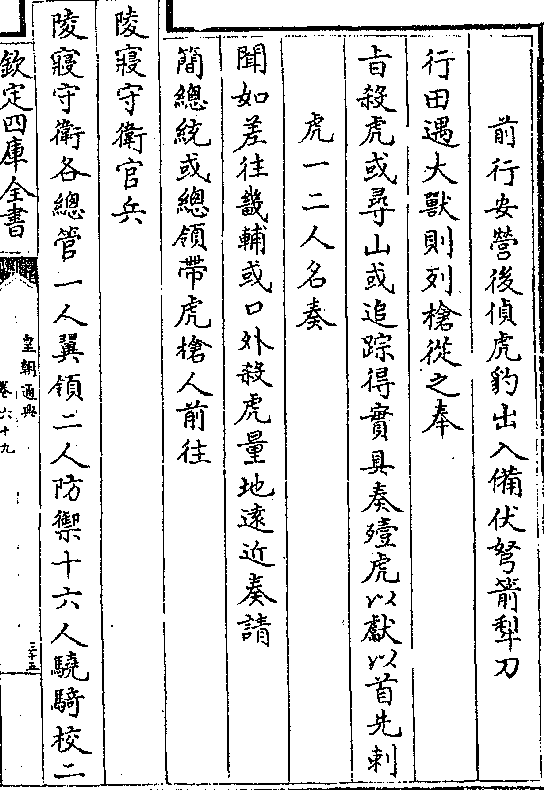 前行安營後偵虎豹出入備伏弩箭犁刀
行田遇大獸則列槍從之奉
㫖殺虎或尋山或追踪得實具奏殪虎以獻以首先刺
虎一二人名奏
聞如差往畿輔或口外殺虎量地遠近奏請
簡總統或總領帶虎槍人前往
陵寢守衛官兵
陵寢守衛各總管一人翼領二人防禦十六人驍騎校二
欽定四庫全書
皇朝通典
卷六十九
三十五